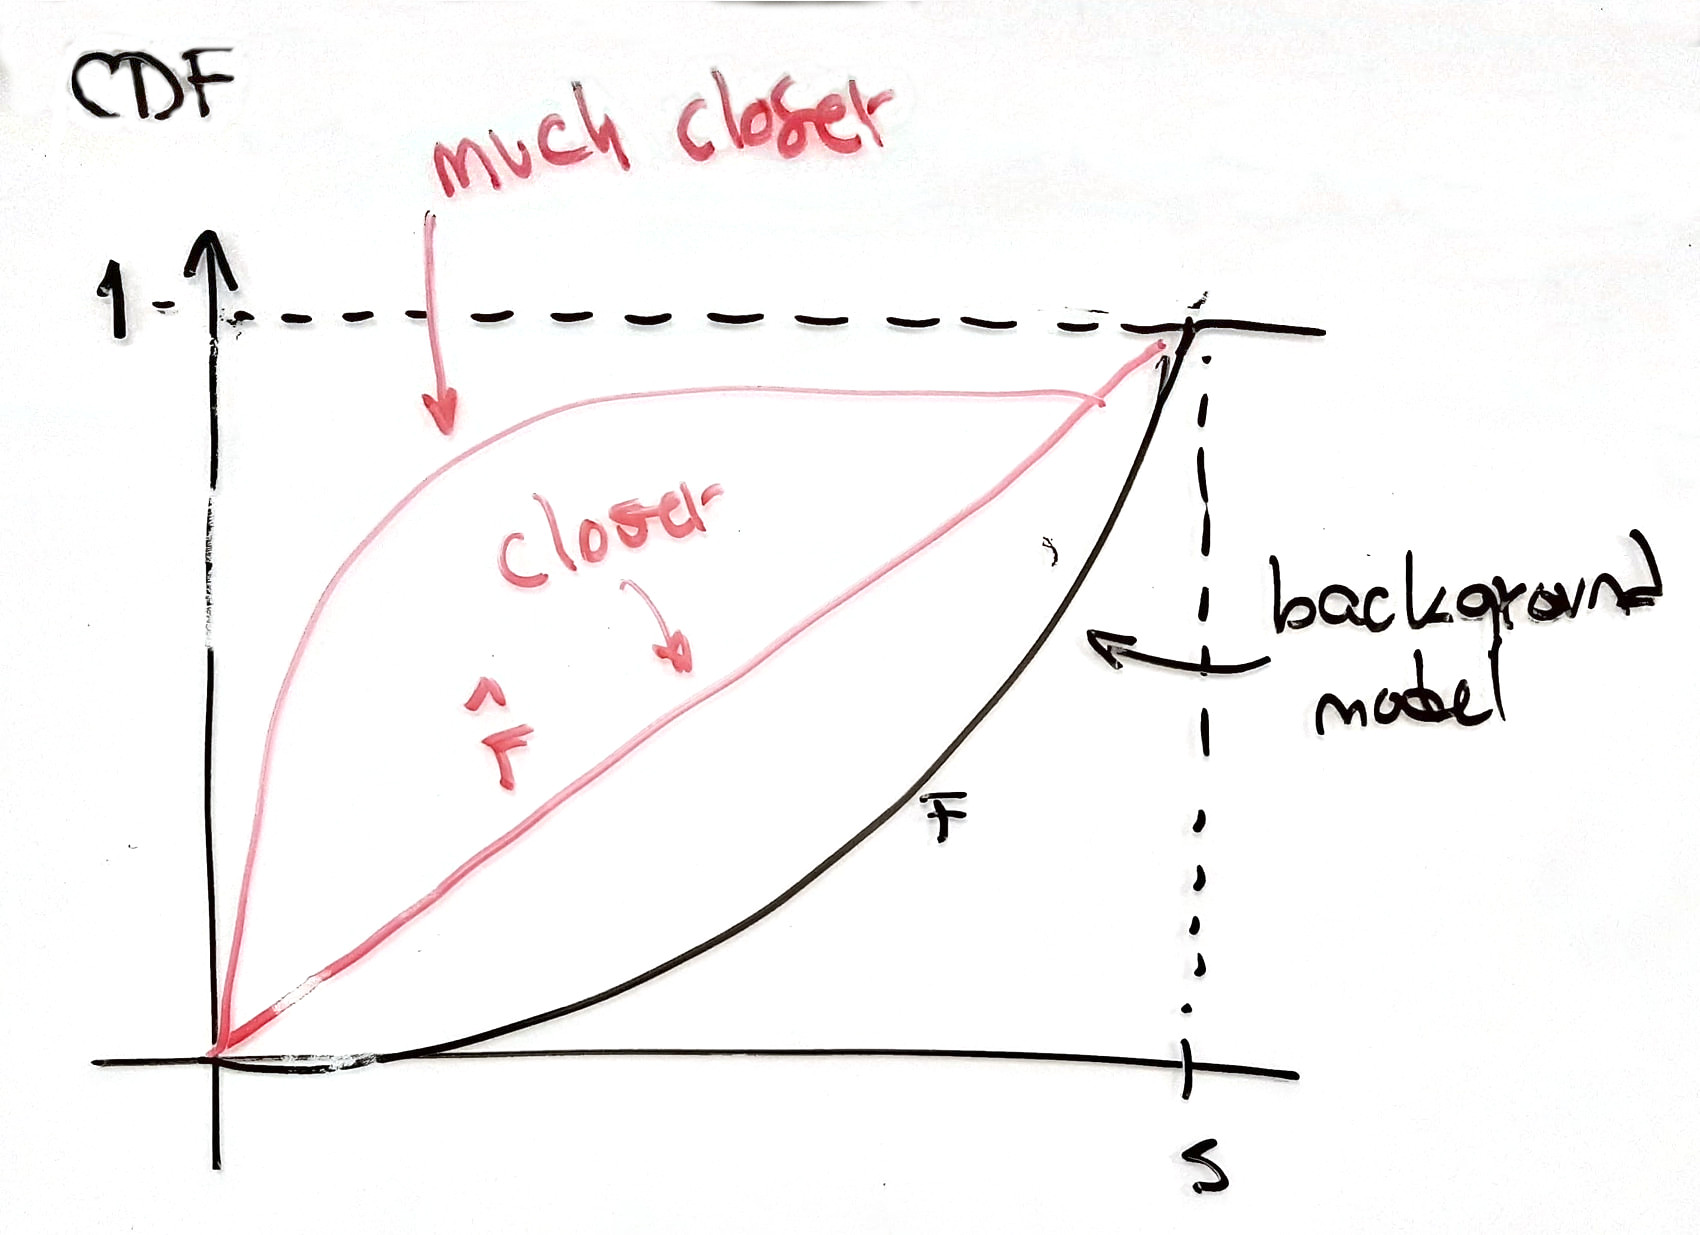 CDF
much closer
1
closer
F̂
background
model
F
s